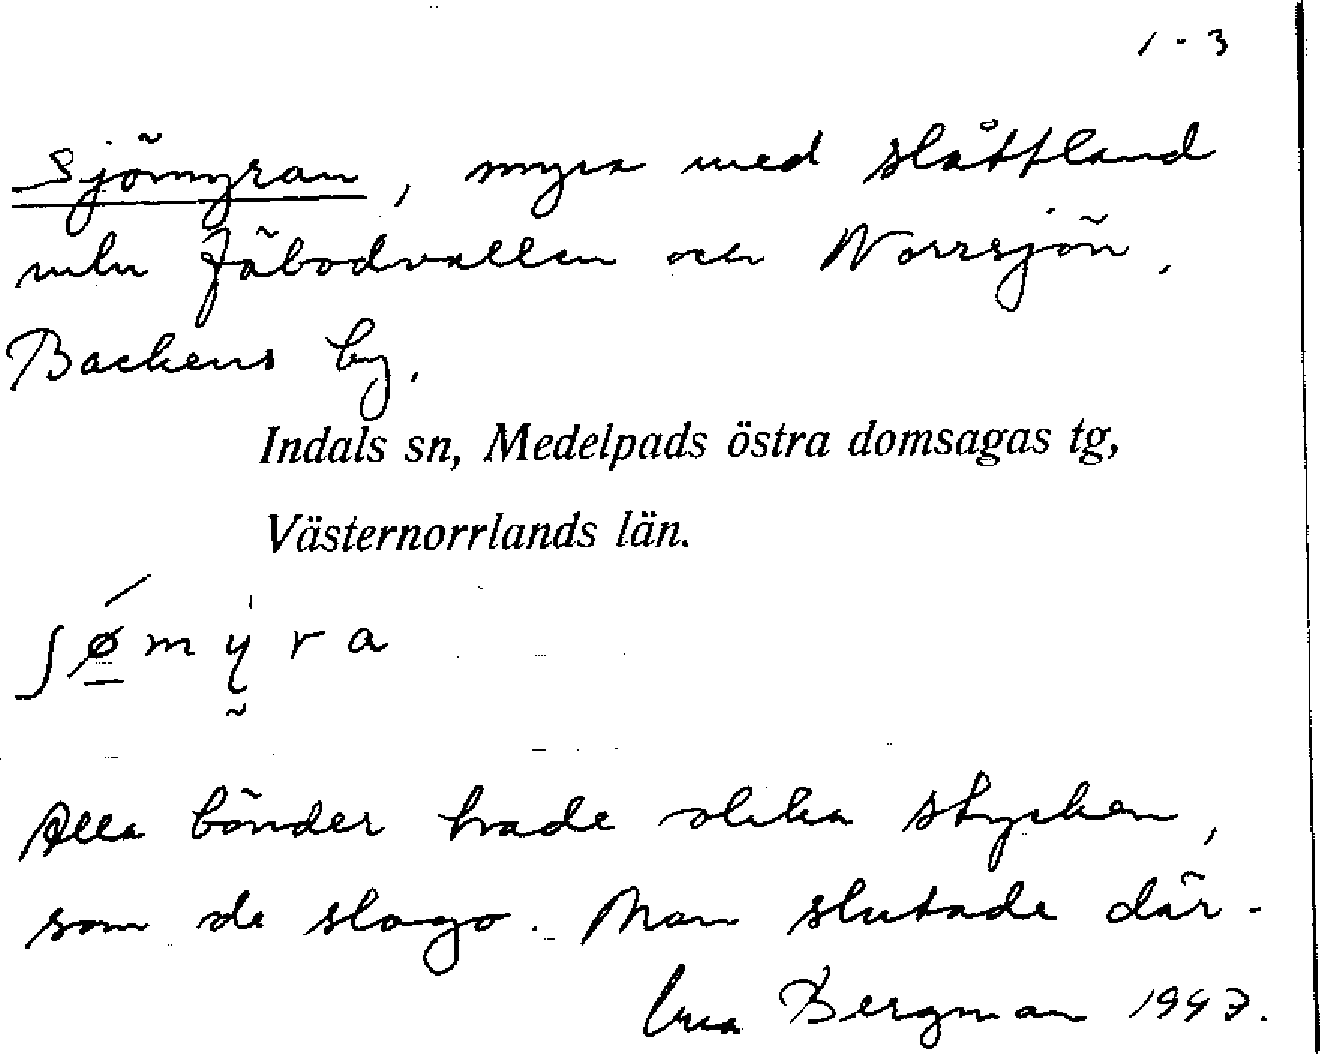 1-3
Sjömyran, myra med slåttland
mln Fäbodvallen och Norrsjön,
Backens by.
Indals sn, Medelpads östra domsagas tg,
Västernorrlands län.
ʃǿ̱mỳra
Alla bönder hade olika stycken,
som de slogo. Man slutade där-
Bergman 1947.